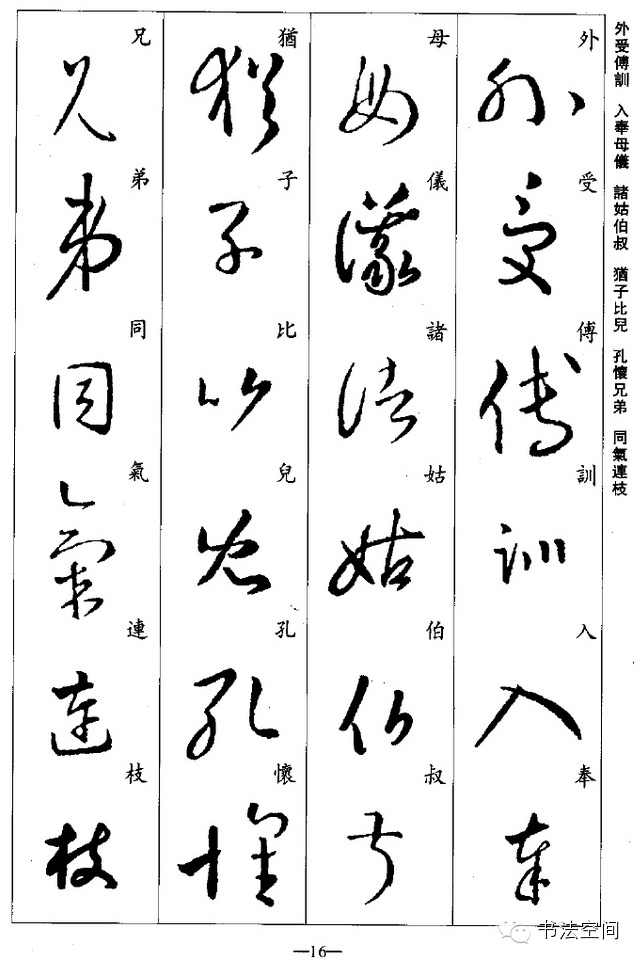 外受傅訓 入奉母儀 諸姑伯叔 猶子比兒 孔懷兄弟 同氣連枝
外受傅訓入奉
母儀諸姑伯叔
猶子比兒孔懷
兄弟同氣連枝
外受傅訓入奉
母儀諸姑伯叔
猶子比兒孔懷
兄弟同氣連枝
—16—
书法空间